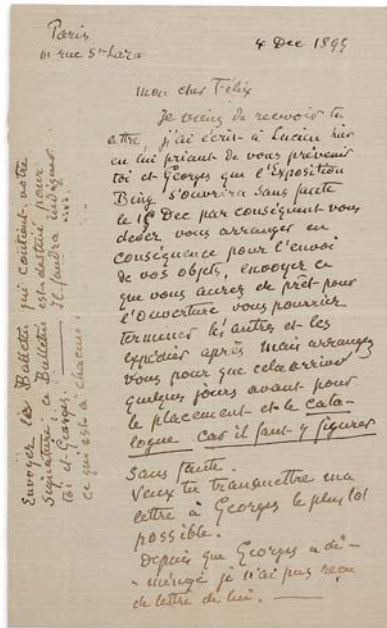 Paris
111 rue St Laza
4 Dec 1895
mon cher Félix
Je viens de recevoir ta
lettre, j'ai écrit à Lucien hier
en lui priant de vous prévenir
toi et Georges que l'Exposition
Bing s'ouvrira sans faute
le 16 Dec par conséquent vous
devez vous arranger en
conséquence pour l'envoi
de vos objets, envoyer ce
que vous aurez de prêt pour
l'ouverture vous pourrier
terminer les autres et les
expédier après mais arrangez
vous pour que cela arrive
quelques jours avant pour
le placement et le cata-
logue car il faut y figurer
sans faute.
Veux tu transmettre ma
lettre à Georges le plus tôt
possible.
Depuis que Georges a dé-
-ménagé je n'ai pas reçu
de lettre de lui.
Envoyer les Bulletin qui contient votre
signature, ce Bulletin est destiné pour
toi et Georges. Il faudra indiquer
ce qui est à chacun.